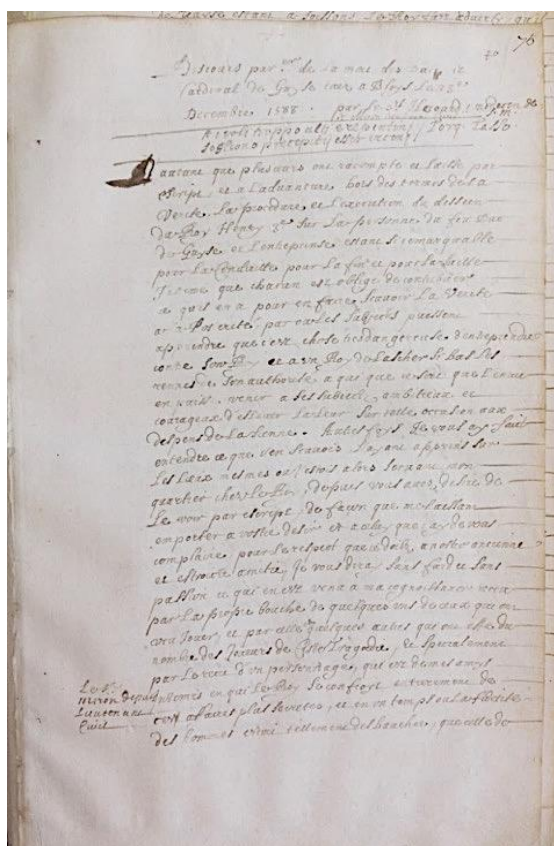 70
76
Discours par de la mort des Duc et
Cardinal de Guyse tuez a Bloys l'an
Decembre 1588. par le Sr
Torq. Tasso
autant que plusieurs ont racompté et laissé par
escript, et a l'advanture hors des termes de la
Verité, La procedure et l'execution du dessein
du Roy Henry 3me sur la personne du feu Duc
de Guyse et l'entreprinse estant si remarquable
pour la conduitte pour la fin et pour la
J'estime que chacun est obligé de contribuer
ce qu'il en a pour en faire scavoir La Verité
a la Posterité, par ou les subjects puissent
apprendre que c'est chose tresdangereuse d'entreprendre
contre son Roy et a un Roy de lascher si bas les
rennes de son authorité, a qui que ce soit que l'envie
en puisse venir a des subjects, ambitieux et
courageux d'essayer sur telle occasion aux
despens de la sienne. Autresfoys Je vous ay faict
entendre ce que j'en scavois l'ayant apprins sur
les lieux mesmes ou j'estois alors servant mon
quartier chez le Roy, depuis vous avez desiré de
Le voir par escript, de façon que me laissant
emporter a vostre desir et a celuy que j'ay de vous
complaire pour le respect que je doibs a nostre ancienne
et estroitte amitié, Je vous diray sans fard et sans
passion ce qui en est venu a ma cognoissance
par la propre bouche de quelques uns de ceux qui ont
veu jouer, et par celle quelques autres qui ont esté du
nombre des Joueurs de ceste Tragedie, et specialement
par le recit d'un personnage, qui est de mes amys
intimes en qui le Roy se confioit entierement de
ses affaires plus secretes, et en un temps ou la fidelité
des hommes estoit tellement desbauchée, que celle de
Le Sr
Miron depuis
Lieutenant
Civil